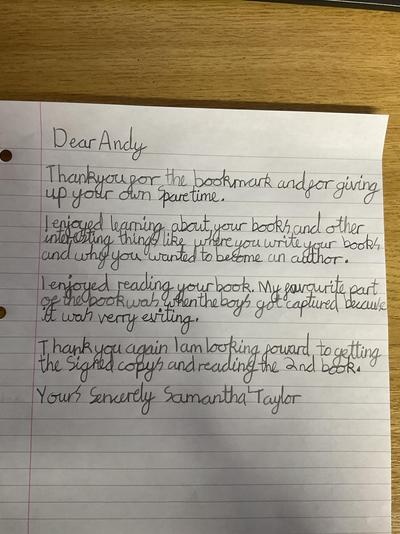 Dear Andy
Thankyou for the bookmark and for giving
up your own Sparetime.
I enjoyed learning about your books, and other
interesting things like where you write your books
and why you wanted to become an author.
I enjoyed reading your book. My favourite part
of the book was when the boys got captured because
it was verry exiting.
Thank you again I am looking foward to getting
the Signed copys and reading the 2nd book.
Yours Sencerely Samantha Taylor